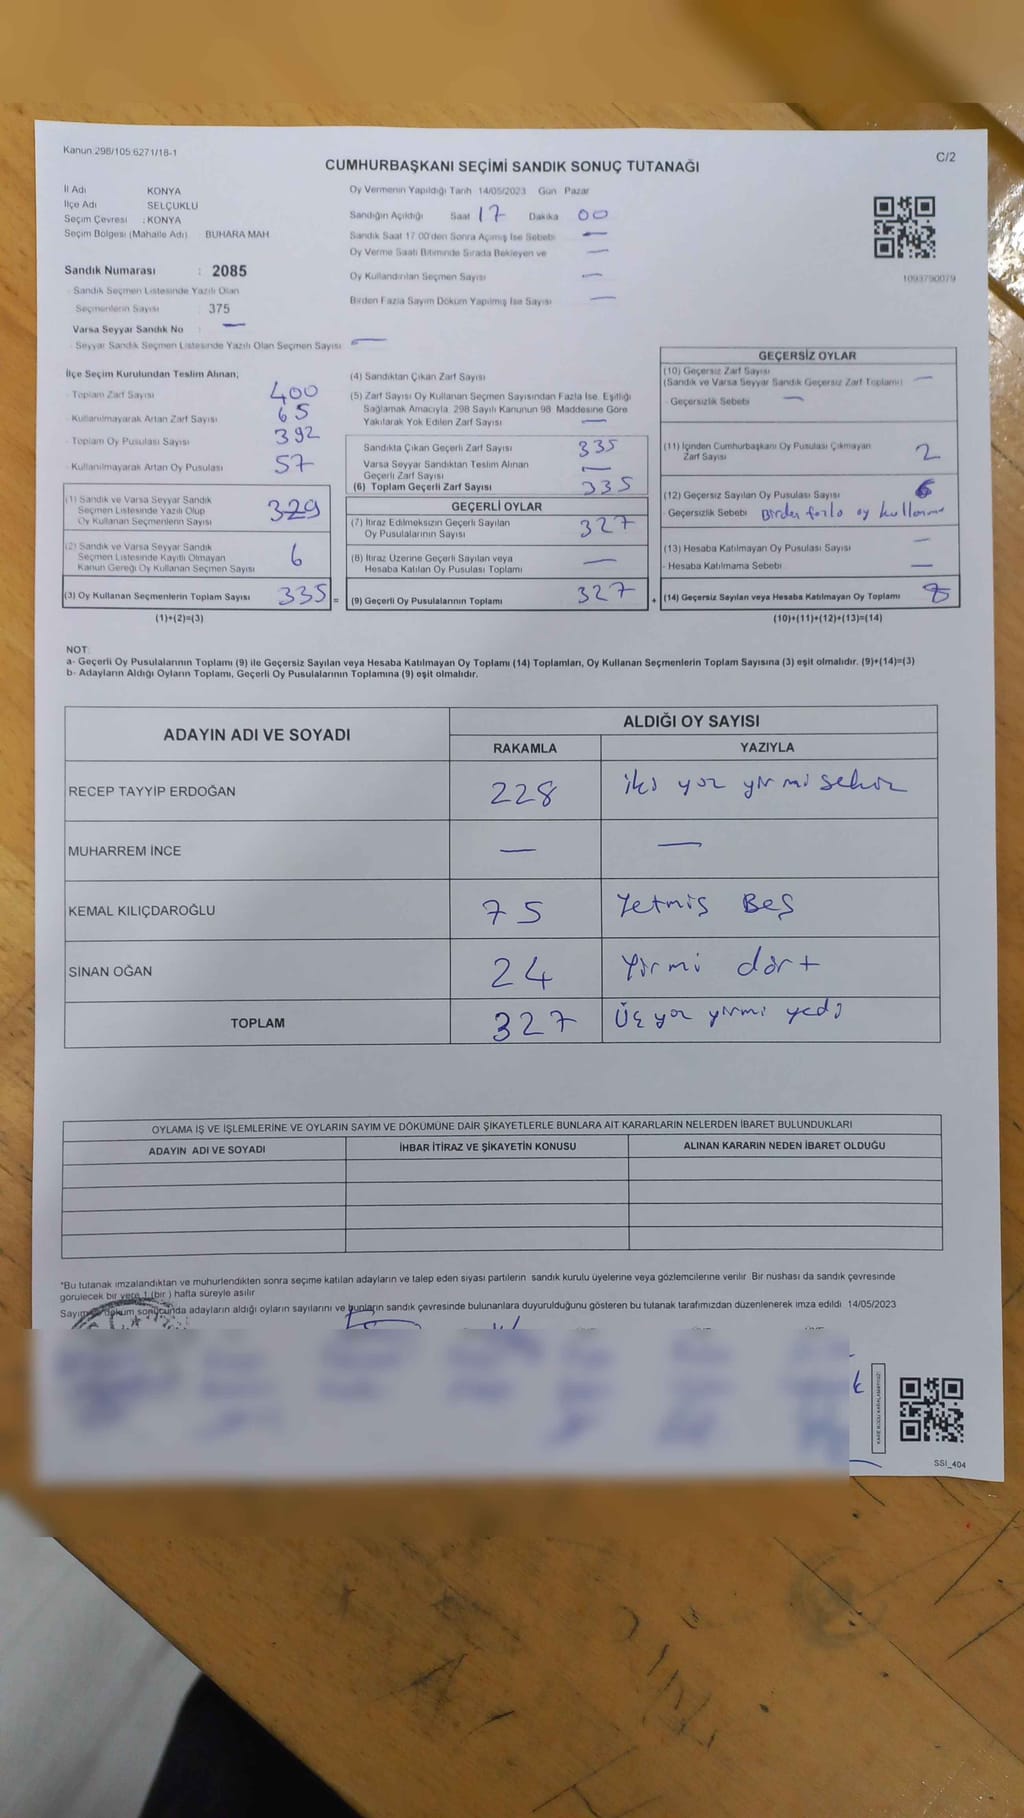 Kanun 298/105 6271/18-1
C/2
CUMHURBAŞKANI SEÇİMİ SANDIK SONUÇ TUTANAĞI
İl Adı KONYA
İlçe Adı SELÇUKLU
Seçim Çevresi : KONYA
Seçim Bölgesi (Mahalle Adı) BUHARA MAH
Sandık Numarası : 2085
Sandık Seçmen Listesinde Yazılı Olan
Seçmenlerin Sayısı 375
Varsa Seyyar Sandık No : —
Seyyar Sandık Seçmen Listesinde Yazılı Olan Seçmen Sayısı —
Oy Vermenin Yapıldığı Tarih 14/05/2023 Gün Pazar
Sandığın Açıldığı Saat 17 Dakika 00
Sandık Saat 17 00'den Sonra Açılmış İse Sebebi —
Oy Verme Saati Bitiminde Sırada Bekleyen ve —
Oy Kullandırılan Seçmen Sayısı —
Birden Fazla Sayım Döküm Yapılmış İse Sayısı —
1093790079
İlçe Seçim Kurulundan Teslim Alınan;
Toplam Zarf Sayısı 400
Kullanılmayarak Artan Zarf Sayısı 65
Toplam Oy Pusulası Sayısı 392
Kullanılmayarak Artan Oy Pusulası 57
(1) Sandık ve Varsa Seyyar Sandık
Seçmen Listesinde Yazılı Olup
Oy Kullanan Seçmenlerin Sayısı 329
(2) Sandık ve Varsa Seyyar Sandık
Seçmen Listesinde Kayıtlı Olmayan
Kanun Gereği Oy Kullanan Seçmen Sayısı 6
(3) Oy Kullanan Seçmenlerin Toplam Sayısı 335 =
(1)+(2)=(3)
(4) Sandıktan Çıkan Zarf Sayısı
(5) Zarf Sayısı Oy Kullanan Seçmen Sayısından Fazla İse, Eşitliği
Sağlamak Amacıyla, 298 Sayılı Kanunun 98 Maddesine Göre
Yakılarak Yok Edilen Zarf Sayısı —
Sandıkta Çıkan Geçerli Zarf Sayısı 335
Varsa Seyyar Sandıktan Teslim Alınan
Geçerli Zarf Sayısı —
(6) Toplam Geçerli Zarf Sayısı 335
GEÇERLİ OYLAR
(7) İtiraz Edilmeksizin Geçerli Sayılan
Oy Pusulalarının Sayısı 327
(8) İtiraz Üzerine Geçerli Sayılan veya
Hesaba Katılan Oy Pusulası Toplamı —
(9) Geçerli Oy Pusulalarının Toplamı 327 +
GEÇERSİZ OYLAR
(10) Geçersiz Zarf Sayısı
(Sandık ve Varsa Seyyar Sandık Geçersiz Zarf Toplamı) —
- Geçersizlik Sebebi —
(11) İçinden Cumhurbaşkanı Oy Pusulası Çıkmayan
Zarf Sayısı 2
(12) Geçersiz Sayılan Oy Pusulası Sayısı 6
- Geçersizlik Sebebi Birden fazla oy kullanma
(13) Hesaba Katılmayan Oy Pusulası Sayısı —
- Hesaba Katılmama Sebebi —
(14) Geçersiz Sayılan veya Hesaba Katılmayan Oy Toplamı 8
(10)+(11)+(12)+(13)=(14)
NOT:
a- Geçerli Oy Pusulalarının Toplamı (9) ile Geçersiz Sayılan veya Hesaba Katılmayan Oy Toplamı (14) Toplamları, Oy Kullanan Seçmenlerin Toplam Sayısına (3) eşit olmalıdır. (9)+(14)=(3)
b- Adayların Aldığı Oyların Toplamı, Geçerli Oy Pusulalarının Toplamına (9) eşit olmalıdır.
ADAYIN ADI VE SOYADI
ALDIĞI OY SAYISI
RAKAMLA YAZIYLA
RECEP TAYYİP ERDOĞAN 228 iki yüz yirmi sekiz
MUHARREM İNCE — —
KEMAL KILIÇDAROĞLU 75 Yetmiş Beş
SİNAN OĞAN 24 Yirmi dört
TOPLAM 327 Üç yüz yirmi yedi
OYLAMA İŞ VE İŞLEMLERİNE VE OYLARIN SAYIM VE DÖKÜMÜNE DAİR ŞİKAYETLERLE BUNLARA AİT KARARLARIN NELERDEN İBARET BULUNDUKLARI
ADAYIN ADI VE SOYADI İHBAR İTİRAZ VE ŞİKAYETİN KONUSU ALINAN KARARIN NEDEN İBARET OLDUĞU
*Bu tutanak imzalandıktan ve mühürlendikten sonra seçime katılan adayların ve talep eden siyasi partilerin sandık kurulu üyelerine veya gözlemcilerine verilir Bir nüshası da sandık çevresinde
görülecek bir yere 1 (bir ) hafta süreyle asılır
Sayım ve döküm sonucunda adayların aldığı oyların sayılarını ve bunların sandık çevresinde bulunanlara duyurulduğunu gösteren bu tutanak tarafımızdan düzenlenerek imza edildi 14/05/2023
SSI_404